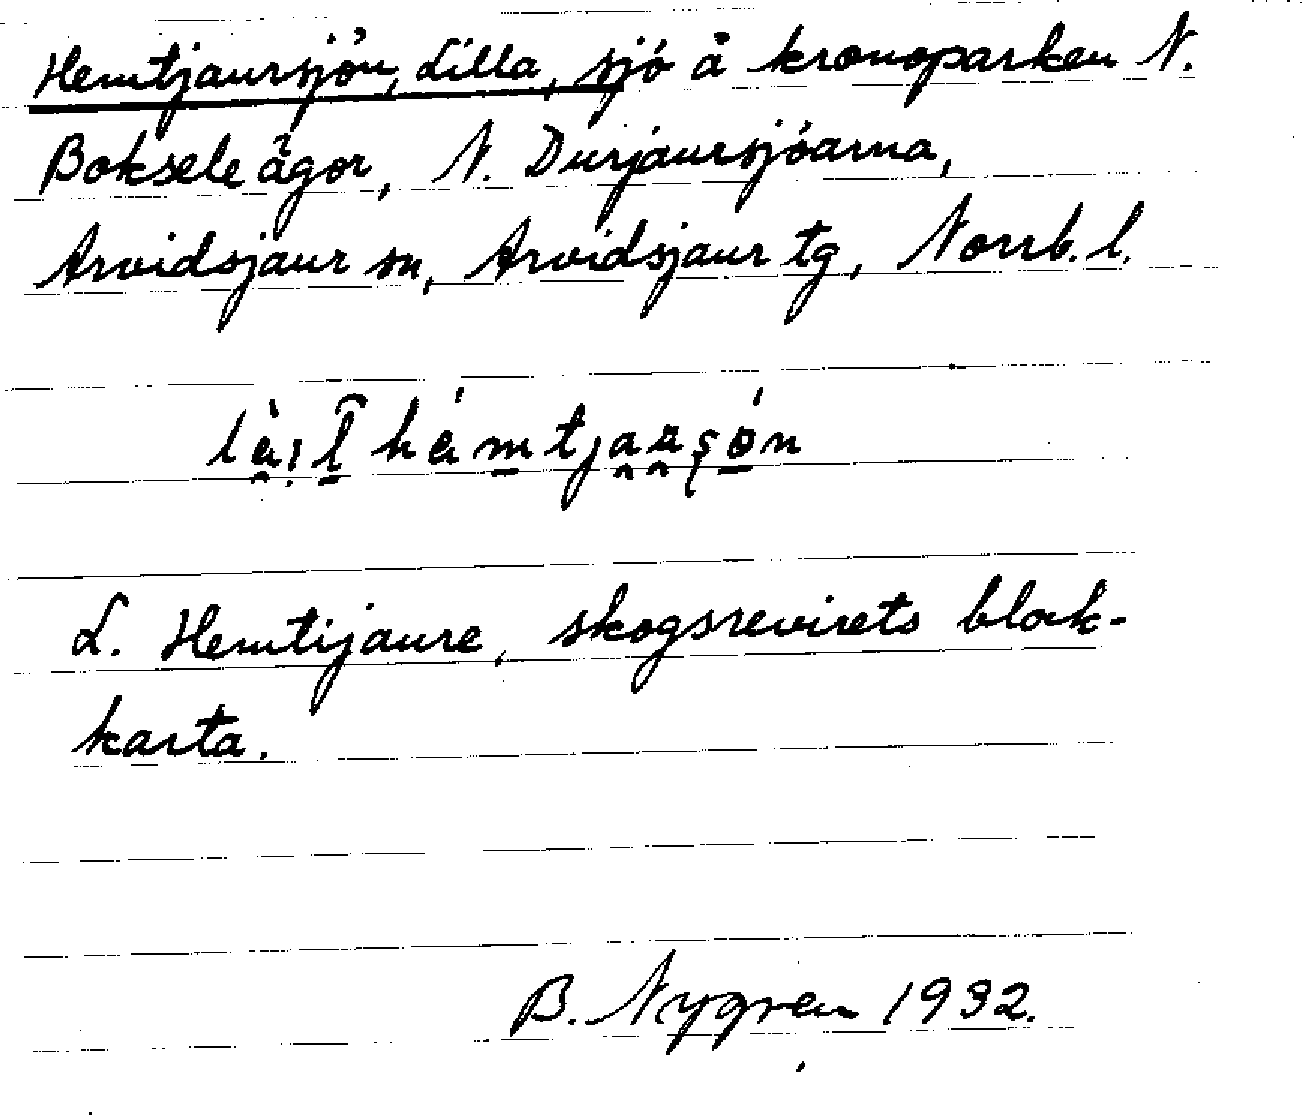 Hemtjaursjön, Lilla, sjö å kronoparken N.
Boksele ägor, N. Durjaursjöarna,
Arvidsjaur sn, Arvidsjaur tg, Norrb. l.
L. Hemtijaure, skogsrevirets block-
karta.
B. Nygren 1932.